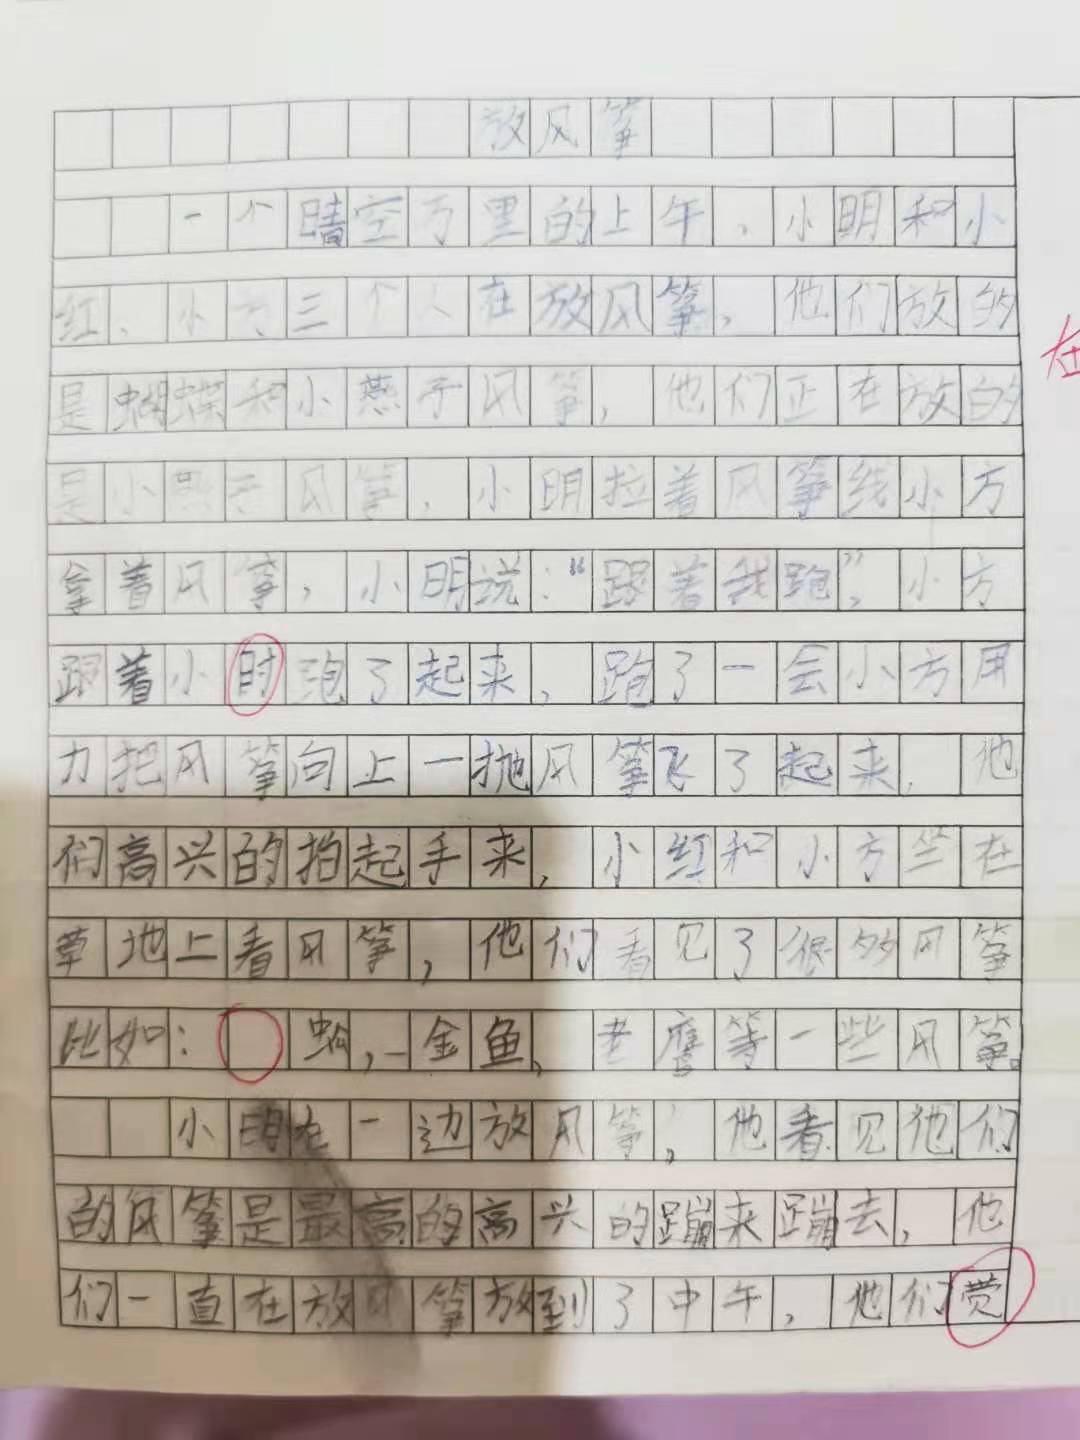 放风筝
一个晴空万里的上午，小明和小
红、小方三个人在放风筝，他们放的
是蝴蝶和小燕子风筝，他们正在放的
是小燕子风筝，小明拉着风筝线小方
拿着风筝，小明说：“跟着我跑”，小方
跟着小时跑了起来，跑了一会小方用
力把风筝向上一抛风筝飞了起来，他
们高兴的拍起手来，小红和小方坐在
草地上看风筝，他们看见了很多风筝
比如：蚣，金鱼，老鹰等一些风筝。
小明在一边放风筝，他看见他们
的风筝是最高的高兴的蹦来蹦去，他
们一直在放风筝放到了中午，他们
在